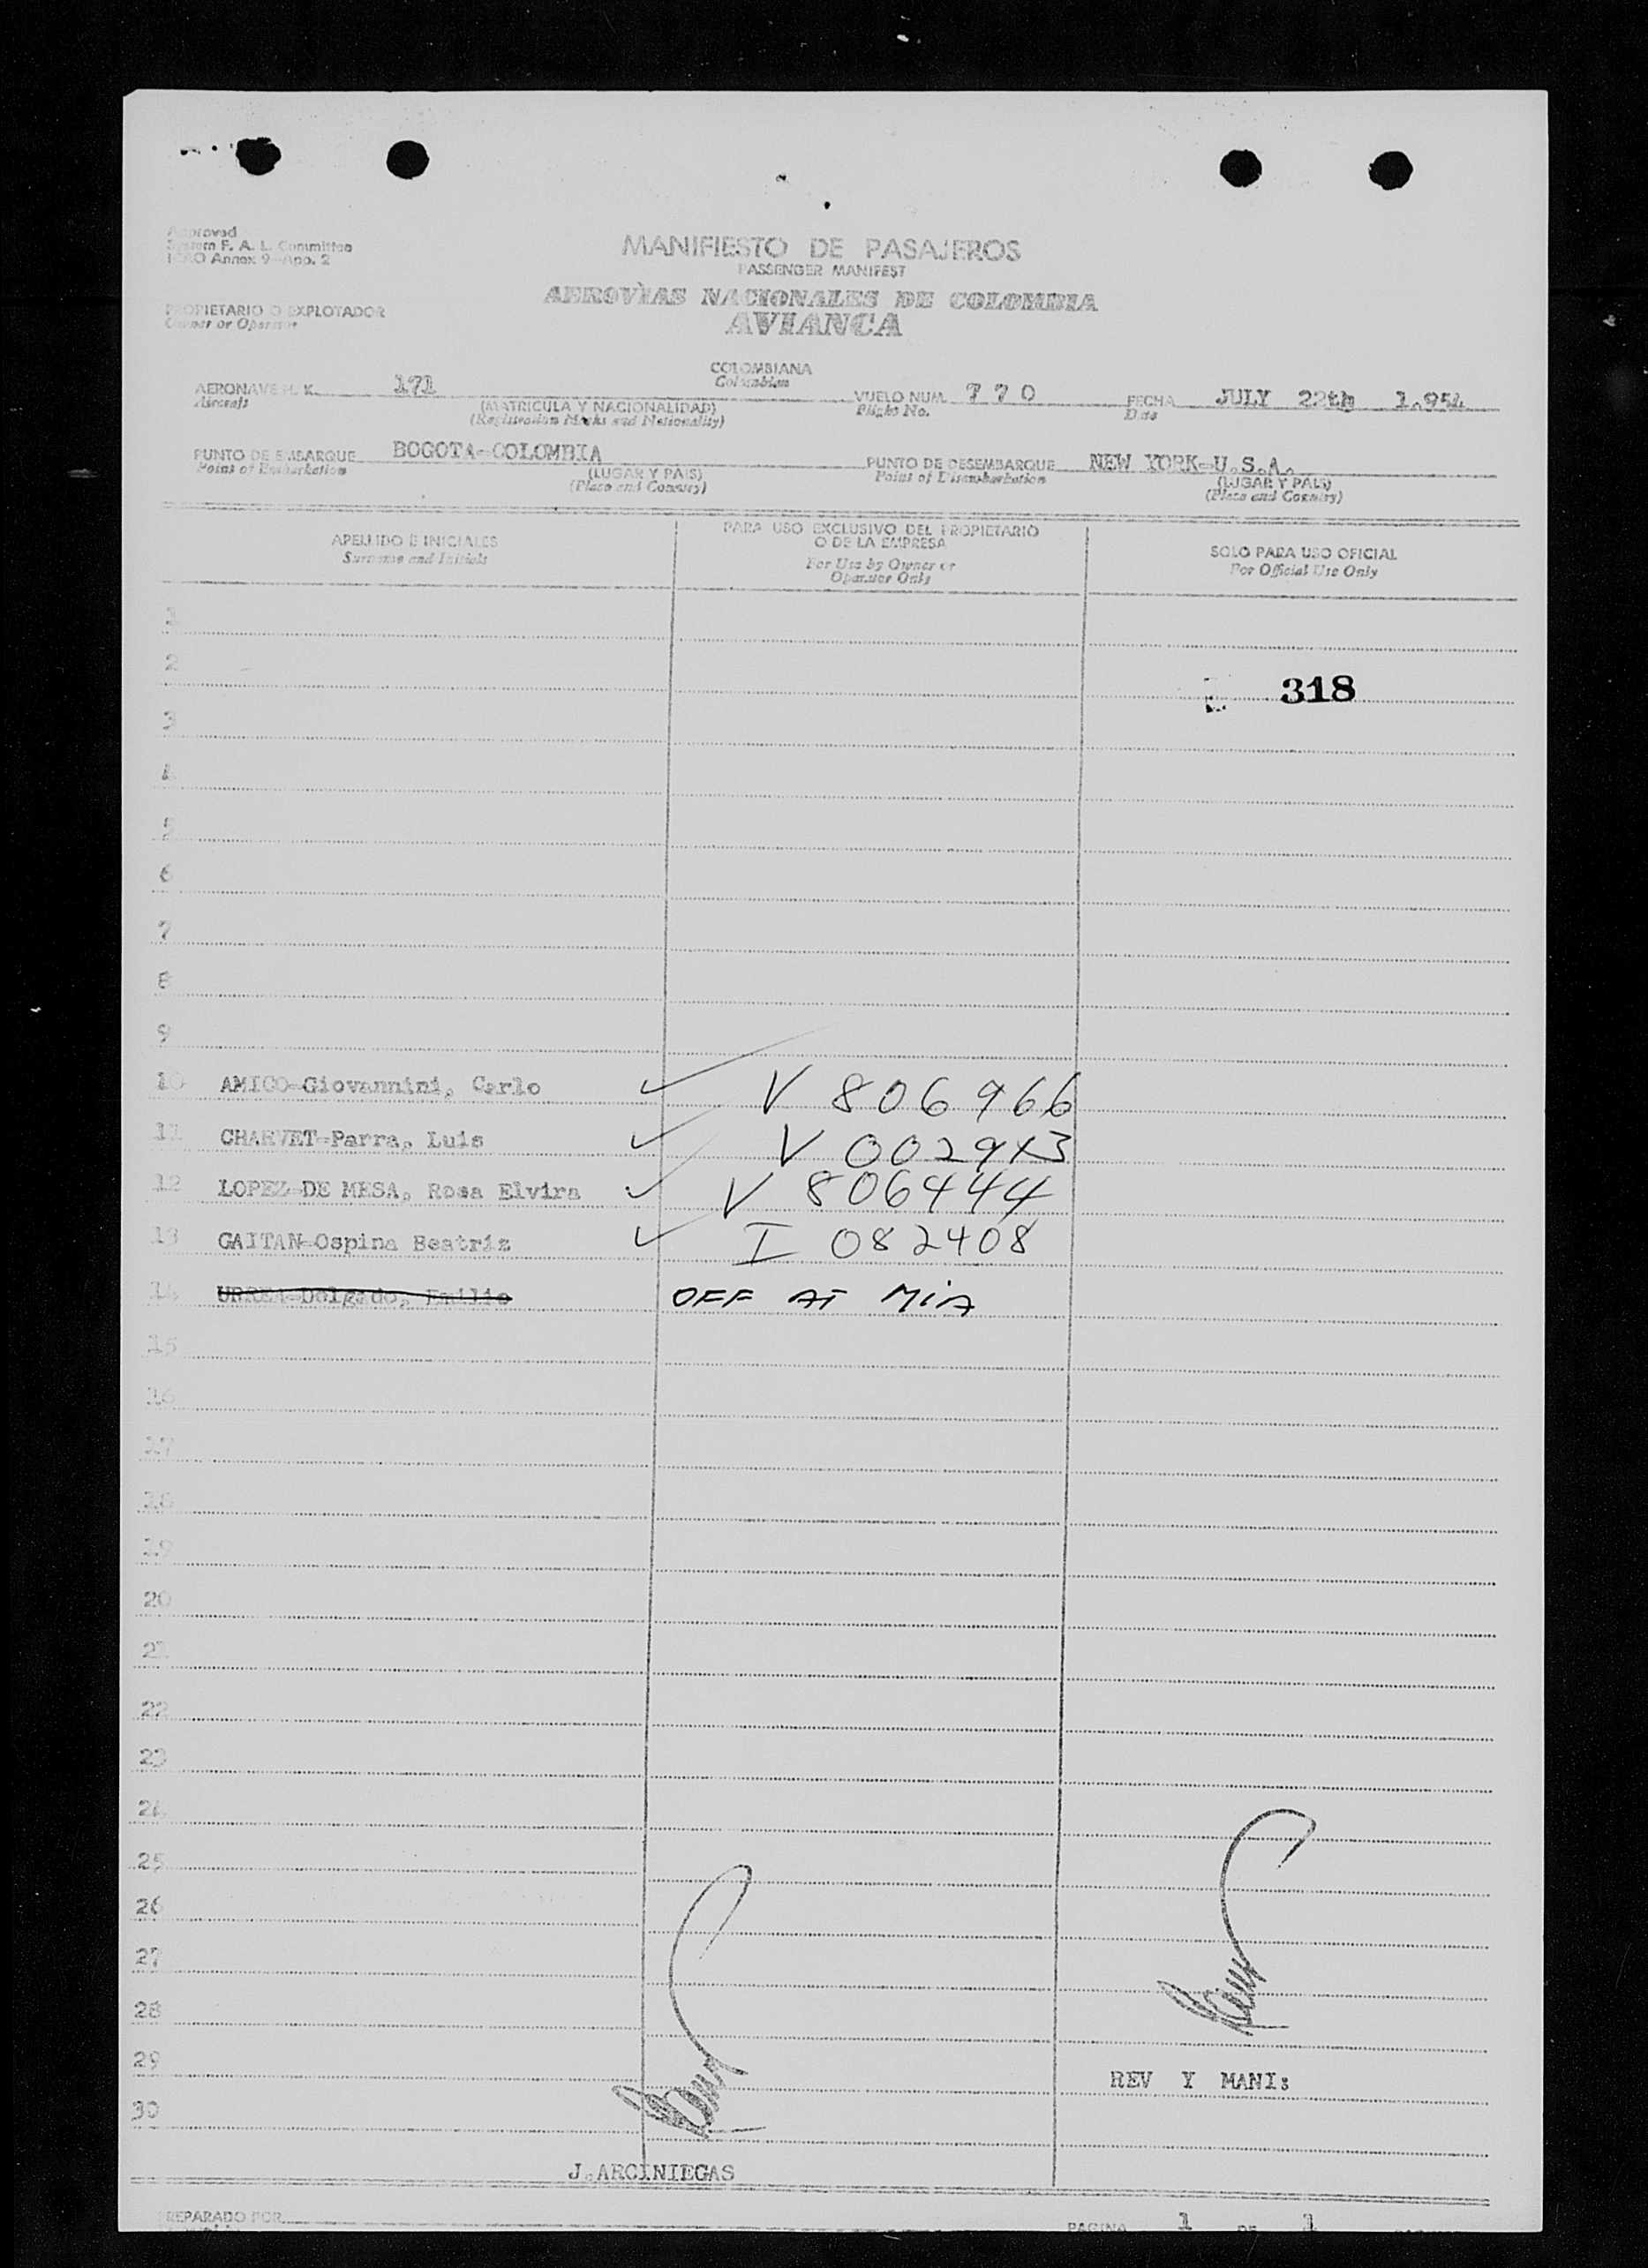 Approved
System F. A. L. Committee
ICAO Annex 9-App. 2
MANIFIESTO DE PASAJEROS
PASSENGER MANIFEST
AEROVÍAS NACIONALES DE COLOMBIA
AVIANCA
PROPIETARIO O EXPLOTADOR
Owner or Operator
COLOMBIANA
Colombian
AERONAVE H. K. 171 VUELO NUM. 7 7 0 FECHA JULY 22th 1.954
Aircraft (MATRICULA Y NACIONALIDAD) Flight No. Date
(Registration Marks and Nationality)
PUNTO DE EMBARQUE BOGOTA-COLOMBIA PUNTO DE DESEMBARQUE NEW YORK-U.S.A.
Point of Embarkation (LUGAR Y PAIS) Point of Disembarkation (LUGAR Y PAIS)
(Place and Country) (Place and Country)
APELLIDO E INICIALES PARA USO EXCLUSIVO DEL PROPIETARIO O DE LA EMPRESA SOLO PARA USO OFICIAL
Surname and Initials For Use by Owner or Operator Only For Official Use Only
1
2 318
3
4
5
6
7
8
9
10 AMICO-Giovannini, Carlo ✓ V 806966
11 CHARVET-Parra, Luis ✓ V
12 LOPEZ-DE MESA, Rosa Elvira ✓ V 806444
13 GAITAN-Ospina Beatriz ✓ I 082408
14 Delgado, Emilio OFF AT MIA
15
16
17
18
19
20
21
22
23
24
25
26
27
28
29 REV Y MANI:
30
J.ARCINIEGAS
PREPARADO POR PAGINA 1 DE 1